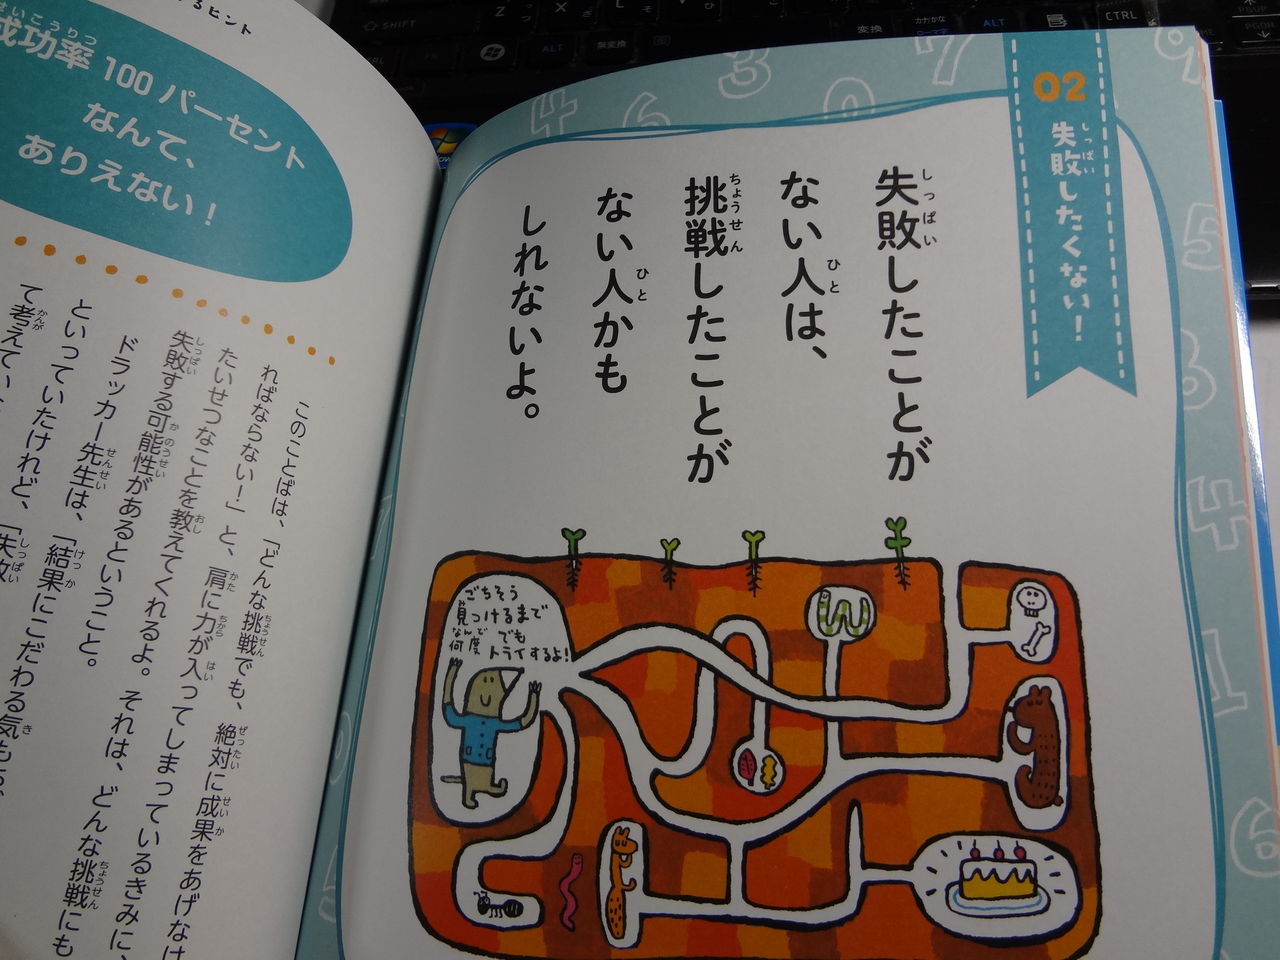 02
失敗したくない!
失敗したことが
ない人は、
挑戦したことが
ない人かも
しれないよ。
ごちそう
見つけるまで
何度でも
トライするよ!
るヒント
成功率100パーセント
なんて、
ありえない!
このことばは、「どんな挑戦でも、絶対に成果をあげなけ
ればならない!」と、肩に力が入ってしまっているきみに、
たいせつなことを教えてくれるよ。それは、どんな挑戦にも
失敗する可能性があるということ。
ドラッカー先生は、「結果にこだわる気もち、
といっていたけれど、「失敗
て考えてい
SHIFT
Z
X
ALT
無変換
変換
カタカナ
ALT
CTRL
PGUP
PGDN